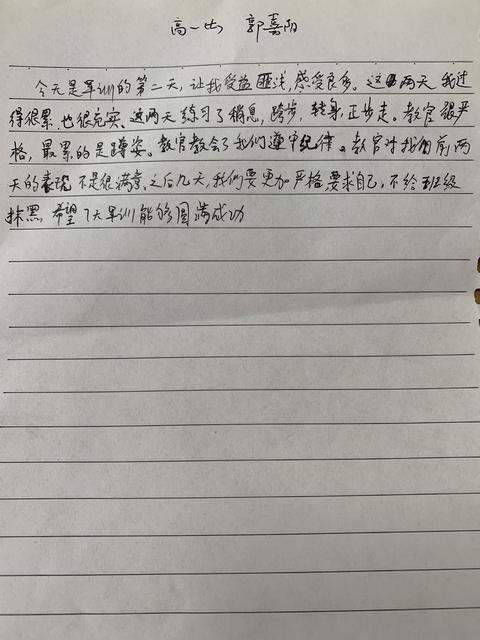 高一 郭嘉阳
今天是军训的第二天,让我受益匪浅,感受良多。这两天我过
得很累,也很充实,这两天练习了稍息,踏步,转身,正步走。教官很严
格,最累的是蹲姿。教官教会了我们遵守纪律。教官对我们前两
天的表现不是很满意,之后几天,我们要更加严格要求自己,不给班级
抹黑,希望7天军训能够圆满成功